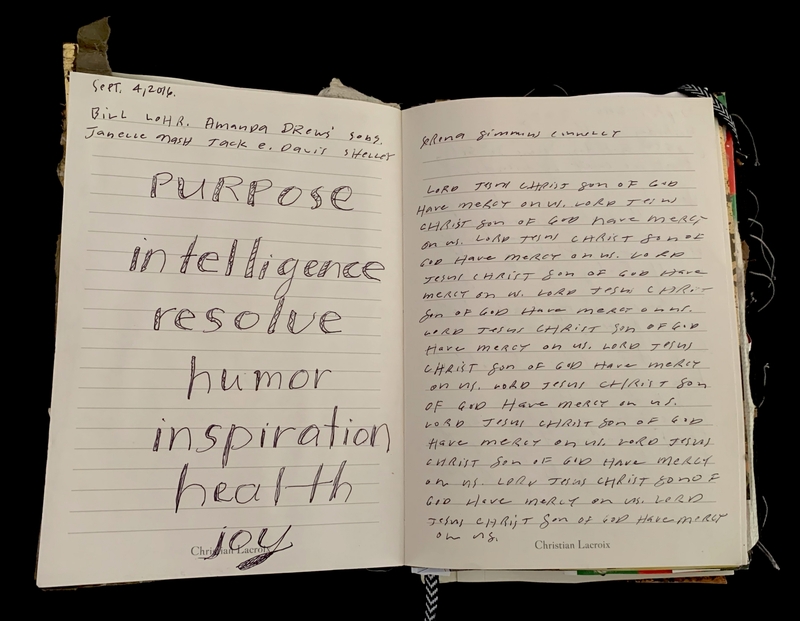 SePT. 4, 2016.
BiLL LOHR. Amanda DREWS' sons.
Janelle mash Jack e. Davis sHeLLeY
PURPOSe
intelligence
resolve
humor
inspiration
health
joy
Christian Lacroix
simmins
LORD Jesus CHRiST son OF GOD
Have meRCY on us. LORD Jesus
CHRiST son OF GOD have meRCY
on us. LORD Jesus CHRiST son OF
GOD Have meRCY on us. LORD
Jesus CHRiST son OF GOD Have
meRCY on us. LORD Jesus CHRiST
son OF GOD Have meRCY on us.
LORD Jesus CHRiST son OF GOD
Have meRCY on us. LORD Jesus
CHRiST son OF GOD Have meRCY
on us. LORD Jesus CHRiST son
OF GOD Have meRCY on us.
LORD Jesus CHRiST son OF GOD
Have meRCY on us. LORD Jesus
CHRiST son OF GOD Have meRCY
on us. LORD Jesus CHRiST son OF
GOD Have meRCY on us. LORD
Jesus CHRiST son OF GOD Have meRCY
on us.
Christian Lacroix